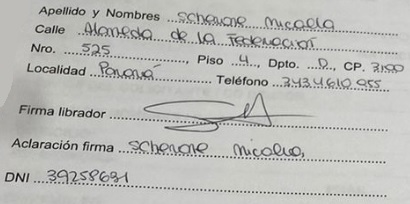 Apellido y Nombres Schenone Micaela
Calle Alameda de la Federación
Nro. 525, Piso 4, Dpto. D, CP. 3100
Localidad Paraná Teléfono 3434610955
Firma librador
Aclaración firma Schenone Micaela
DNI 39258691